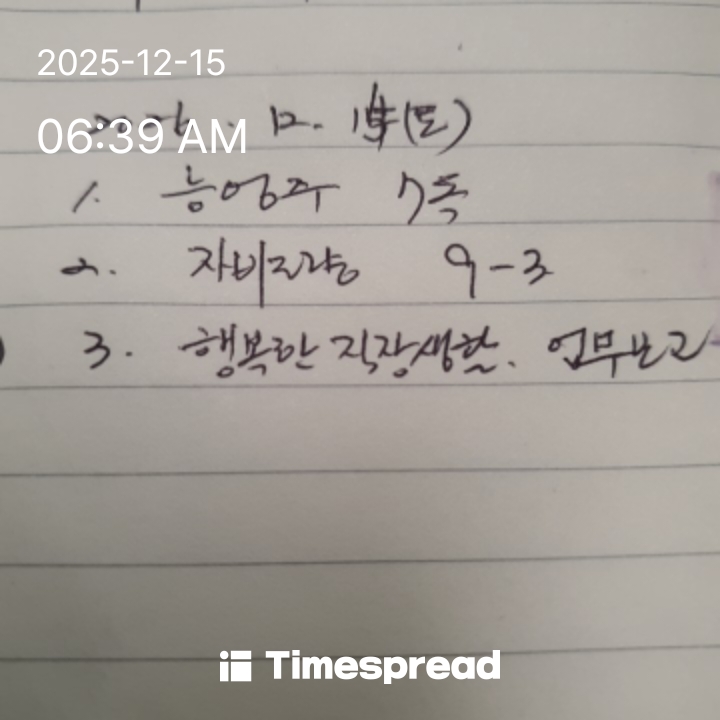 2025-12-15
06:39 AM
12. (토)
1. 능엄주 7독
2. 자비도량 9-3
3. 행복한 직장생활. 업무보고
Timespread